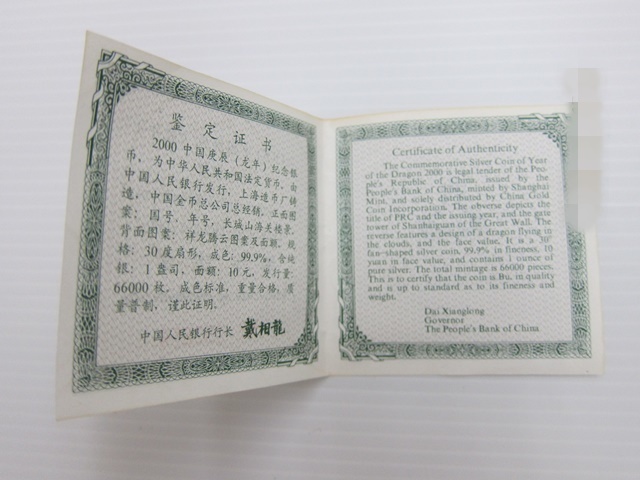 鉴定证书
2000 中国庚辰（龙年）纪念银
币，为中华人民共和国法定货币。由
中国人民银行发行，上海造币厂铸
造，中国金币总公司总经销。正面图
案：国号、年号，长城山海关楼景；
背面图案：祥龙腾云图案及面额。规
格：30度扇形，成色：99.9%，含纯
银：1 盎司，面额：10 元，发行量：
66000 枚。成色标准，重量合格，质
量普制，谨此证明。
中国人民银行行长 戴相龍
Certificate of Authenticity
The Commemorative Silver Coin of Year
of the Dragon 2000 is legal tender of the Peo-
ple's Republic of China, issued by the
People's Bank of China, minted by Shanghai
Mint, and solely distributed by China Gold
Coin Incorporation. The obverse depicts the
title of PRC and the issuing year, and the gate
tower of Shanhaiguan of the Great Wall. The
reverse features a design of a dragon flying in
the clouds, and the face value. It is a 30°
fan-shaped silver coin, 99.9% in fineness, 10
yuan in face value, and contains 1 ounce of
pure silver. The total mintage is 66000 pieces.
This is to certify that the coin is Bu, in quality
and is up to standard as to its fineness and
weight.
Dai Xianglong
Governor
The People's Bank of China